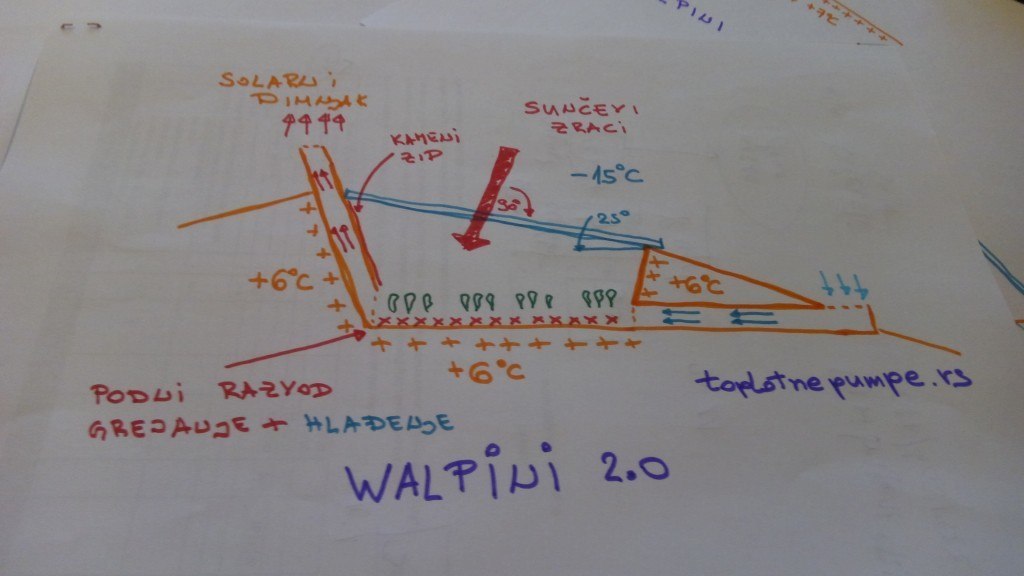 LPINI
+7°C
SOLARNI
DIMNJAK
SUNČEVI
ZRACI
KAMENI
ZID
-15°C
90°
25°
+6°C
+6°C
+6°C
PODNI RAZVOD
GREJANJE + HLAĐENJE
toplotnepumpe.rs
WALPINI 2.0